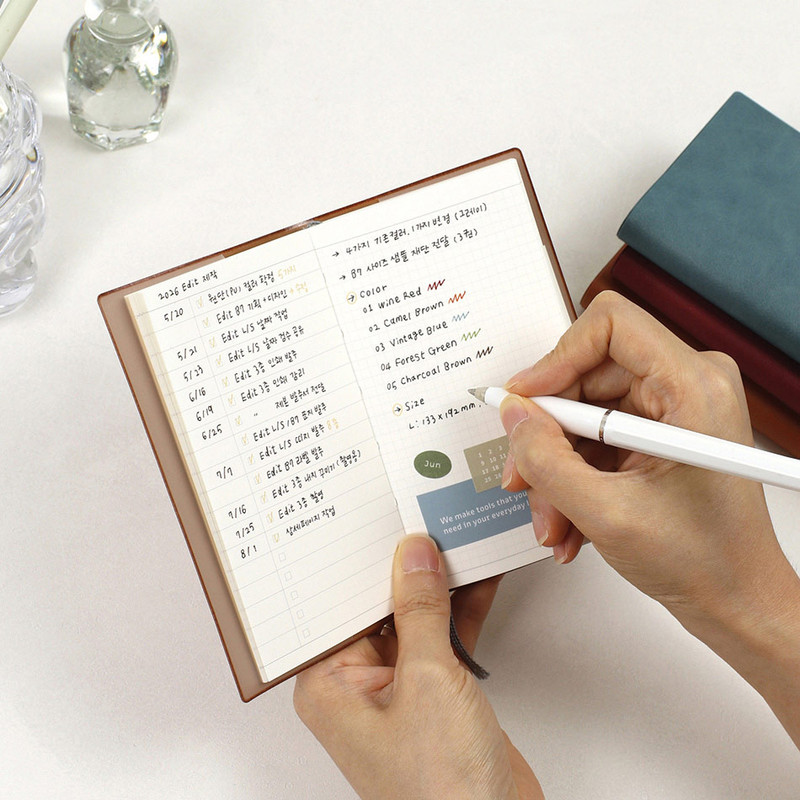 2026 Edit 제작
5/20 원단(PU) 컬러 확정 5가지
Edit B7 기획 + 디자인 + 수정
5/21 Edit L/S 날짜 작업
5/23 Edit L/S 날짜 검수 공유
6/16 Edit 3종 인쇄 발주
6/19 Edit 3종 인쇄 감리
6/25 " 제본 발주서 전달
Edit L/S/B7 표지 발주
7/7 Edit L/S 띠지 발주
Edit B7 라벨 발주
Edit 3종 내지 꾸미기 (촬영용)
7/16 Edit 3종 촬영
7/25 상세페이지 작업
8/1
→ 4가지 기존컬러, 1가지 변경 (그레이)
→ B7 사이즈 샘플 재단 전달 (3권)
→ Color
01 Wine Red
02 Camel Brown
03 Vintage Blue
04 Forest Green
05 Charcoal Brown
→ Size
L: 133 x 192 mm,
Jun
1 2 3
9 10 11
17 18
25 26
We make tools that you
need in your everyday